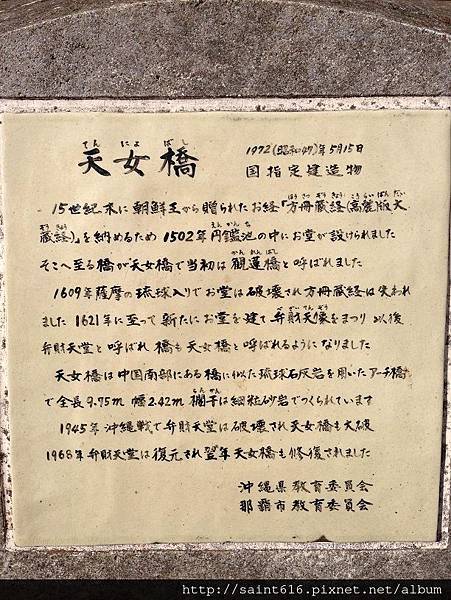 てんにょばし
天女橋
1972(昭和47)年5月15日
国指定建造物
ほうさつぞうきょう こうらいばんだい
15世紀末に朝鮮王から贈られたお経「方冊蔵経(高麗版大
ぞうきょう えんかんち
蔵経)」を納めるため1502年円鑑池の中にお堂が設けられました
かんれんばし
そこへ至る橋が天女橋で当初は観蓮橋と呼ばれました
1609年薩摩の琉球入りでお堂は破壊され方冊蔵経は失われ
べざいてんぞう
ました 1621年に至って新たにお堂を建て弁財天像をまつり以後
弁財天堂と呼ばれ橋も天女橋と呼ばれるようになりました
天女橋は中国南部にある橋に似た琉球石灰岩を用いたアーチ橋
らんかん
で全長9.75m 幅2.42m 欄干は細粒砂岩でつくられています
1945年沖縄戦で弁財天堂は破壊され天女橋も大破
1968年弁財天堂は復元され翌年天女橋も修復されました
沖縄県教育委員会
那覇市教育委員会
http://saint616.pixnet.net/album